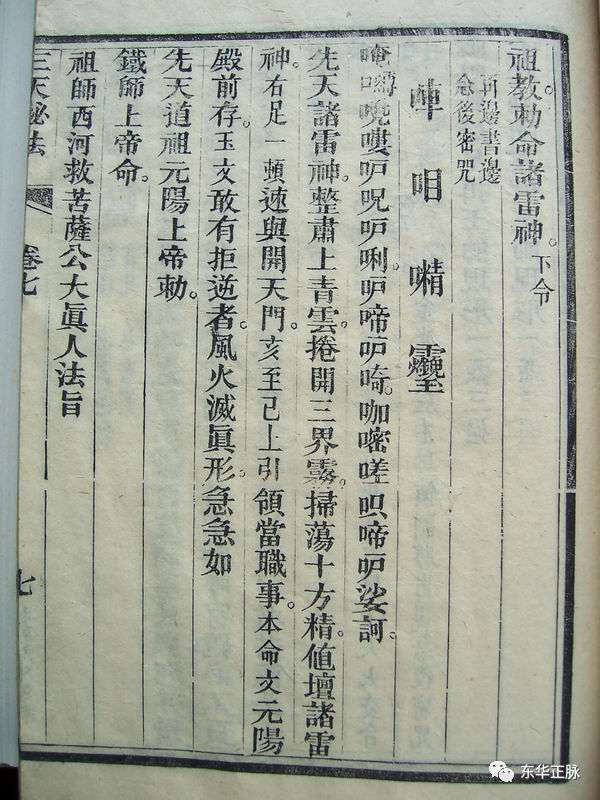 祖教勅命諸雷神。下令
再邊書邊
念後密咒
呾
唵 嘍 呪 唎。 啼 咖嘧嗟 啼 娑訶。
先天諸雷神。整肅上青雲。捲開三界霧。掃蕩十方精。値壇諸雷
神。右足一頓速與開天門。亥至己上引領當職事。本命文元陽
殿前存。玉文敢有拒逆者。風火滅眞形。急急如
先天道祖元陽上帝勅。
鐵師上帝命。
祖師西河救苦薩公大眞人法旨
三天秘法
卷七
七
东华正脉